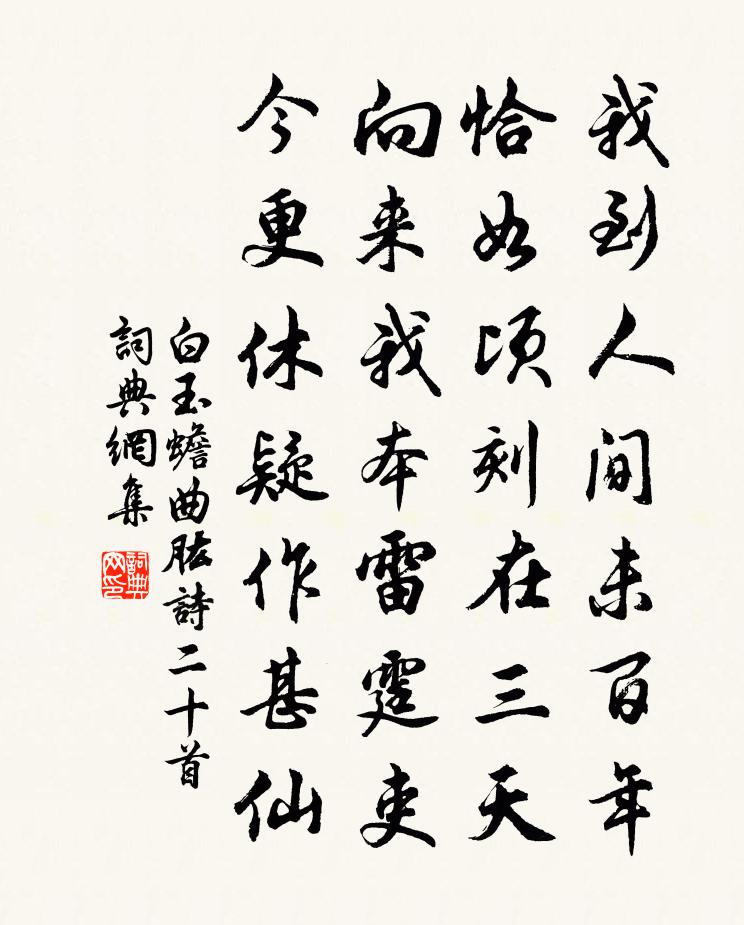 我到人间未百年
恰如顷刻在三天
向来我本雷霆吏
今更休疑作甚仙
白玉蟾曲肱詩二十首
詞典網集
詞典网印